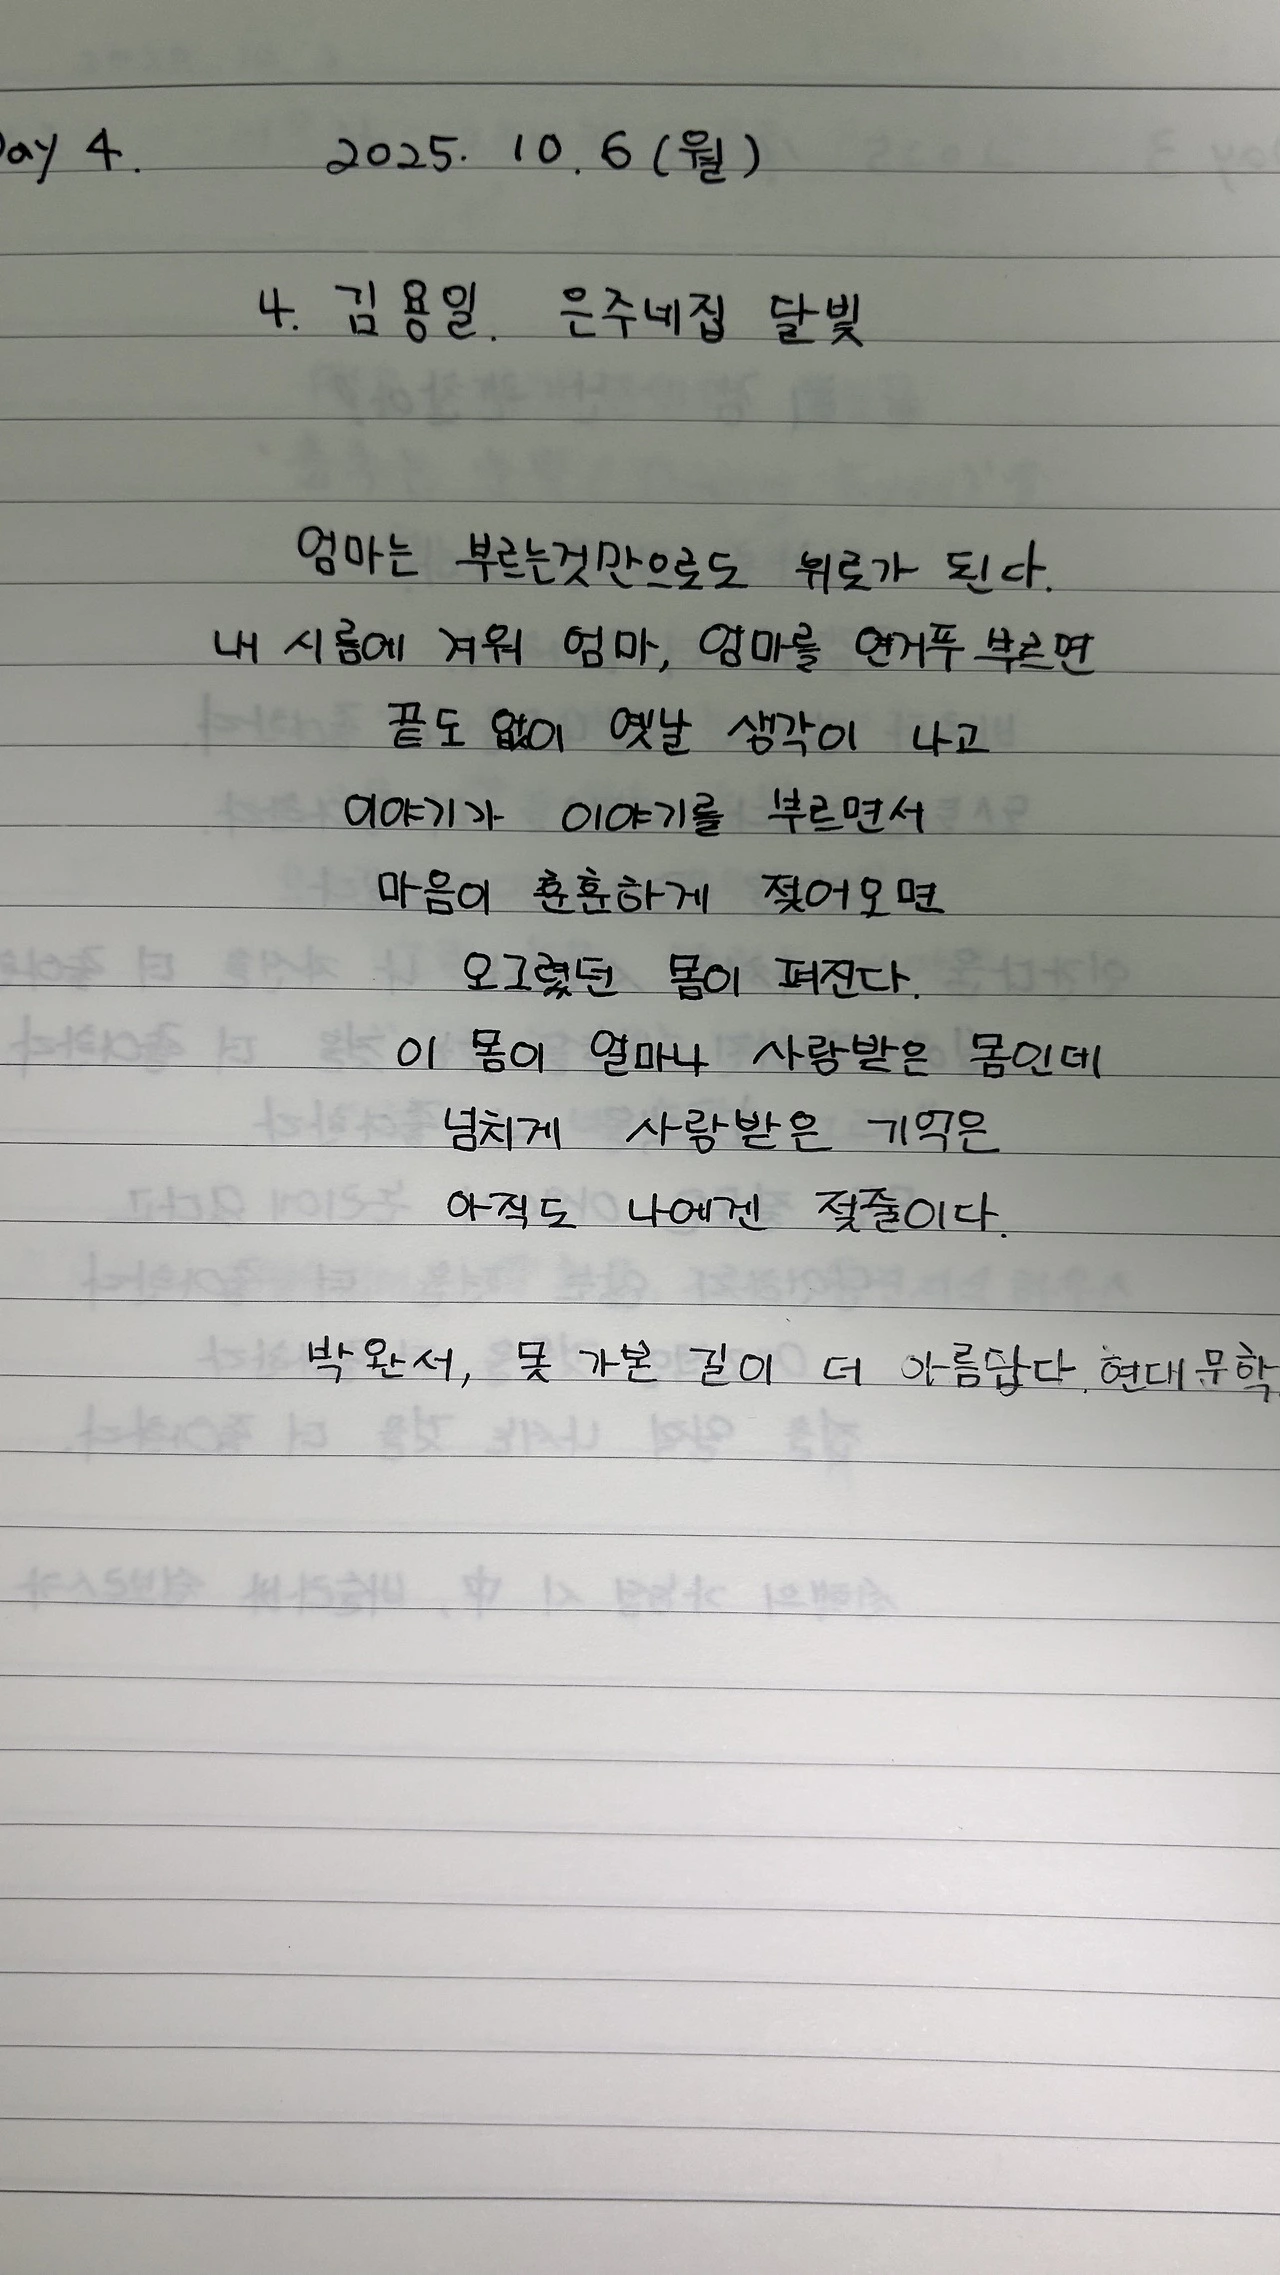 Day 4. 2025. 10. 6 (월)
4. 김용일. 은주네집 달빛
엄마는 부르는것만으로도 위로가 된다.
내 시름에 겨워 엄마, 엄마를 연거푸 부르면
끝도 없이 옛날 생각이 나고
이야기가 이야기를 부르면서
마음이 훈훈하게 젖어오면
오그렸던 몸이 펴진다.
이 몸이 얼마나 사랑받은 몸인데
넘치게 사랑받은 기억은
아직도 나에겐 젖줄이다.
박완서, 못 가본 길이 더 아름답다. 현대문학.